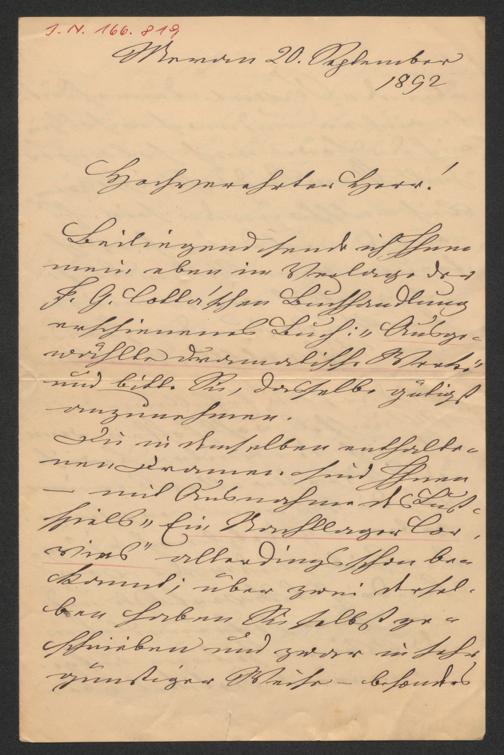 J. N. 166.819
Meran 20. September
1892
Hochverehrter Herr!
Beiliegend sende ich Ihnen
mein eben im Verlage der
J. G. Cotta'schen Buchhandlung
erschienenes Buch: „Ausge-
wählte dramatische Werke"
und bitte Sie, dasselbe gütigst
anzunehmen.
Die in demselben enthalte-
nen Dramen sind Ihnen
– mit Ausnahme des Lust-
spiels „Ein Nachtlager Cor-
vins" allerdings schon be-
kannt; über zwei dersel-
ben haben Sie selbst ge-
schrieben und zwar in sehr
günstiger Weise – besonders